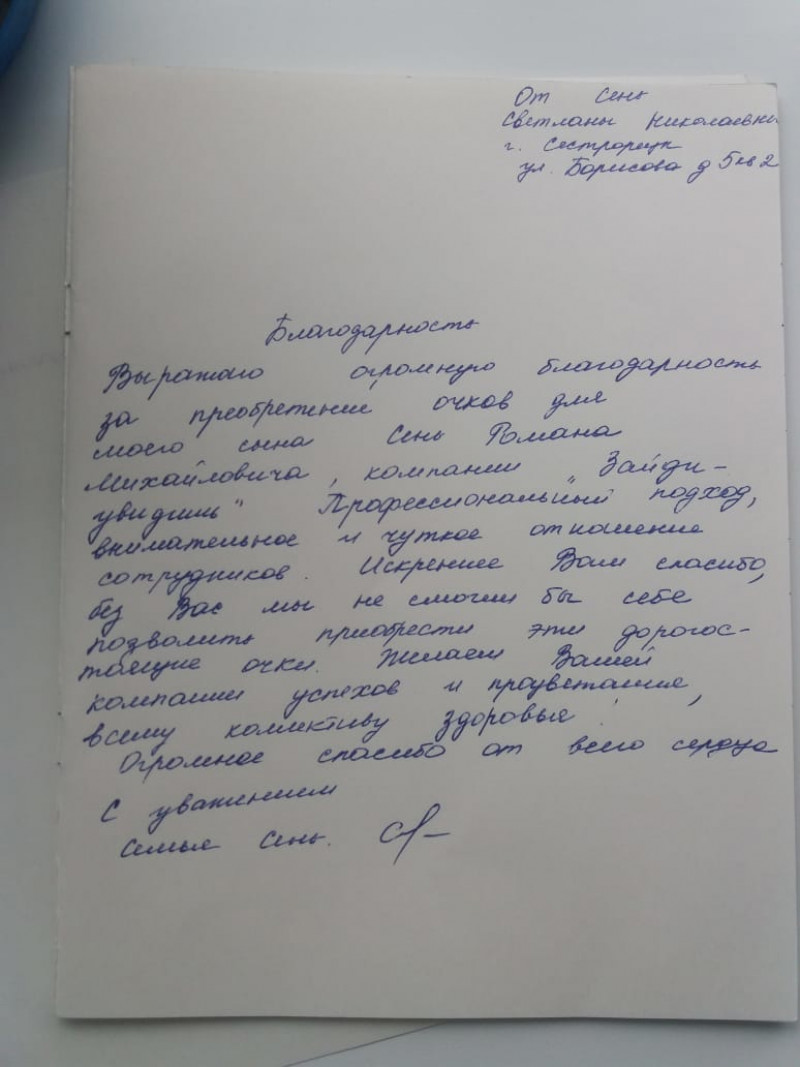 От Сень
Светланы Николаевны
г. Сестрорецк
ул. Борисова д 5 кв 2
Благодарность
Выражаю огромную благодарность
за преобретение очков для
моего сына Сень Романа
Михайловича, компании "Зайди-
увидишь" Профессиональный подход,
внимательное и чуткое отношение
сотрудников. Искреннее Вам спасибо,
без Вас мы не смогли бы себе
позволить приобрести эти дорогос-
тоящие очки. Желаем Вашей
компании успехов и процветания,
всему коллективу здоровья!
Огромное спасибо от всего сердца
С уважением
семья Сень.